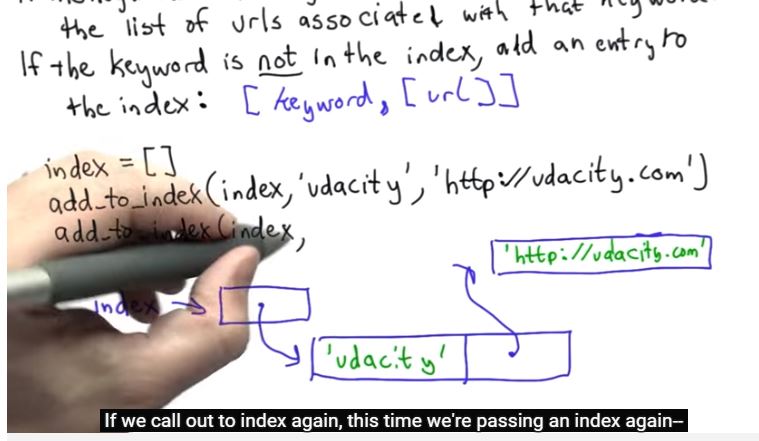 the list of urls associated with that keyword.
If the keyword is not in the index, add an entry to
the index: [keyword, [url]]
index = []
add_to_index(index, 'udacity', 'http://udacity.com')
add_to_index(index,
'http://udacity.com'
index
'udacity'
If we call out to index again, this time we're passing an index again--